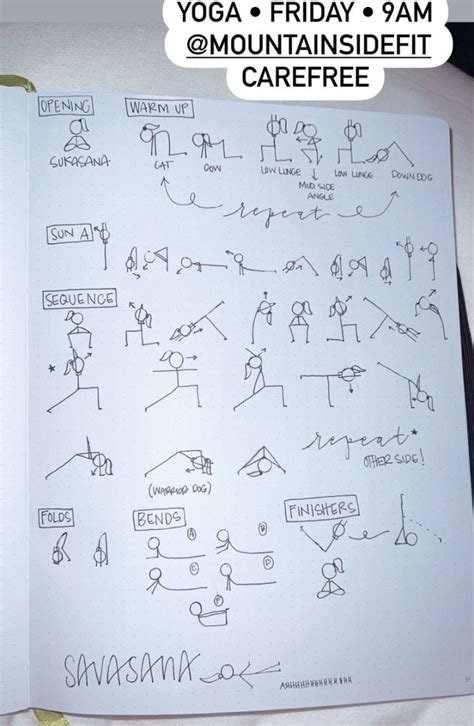 YOGA • FRIDAY • 9AM
@MOUNTAINSIDEFIT
CAREFREE
OPENING
WARM UP
SUKASANA
CAT
COW
LOW LUNGE
MOD. SIDE
ANGLE
LOW LUNGE
DOWN DOG
repeat
SUN A
SEQUENCE
*
repeat*
OTHER SIDE!
(WARRIOR DOG)
FOLDS
BENDS
FINISHERS
A
B
C
D
SAVASANA
AHHHHHHHHHHHH